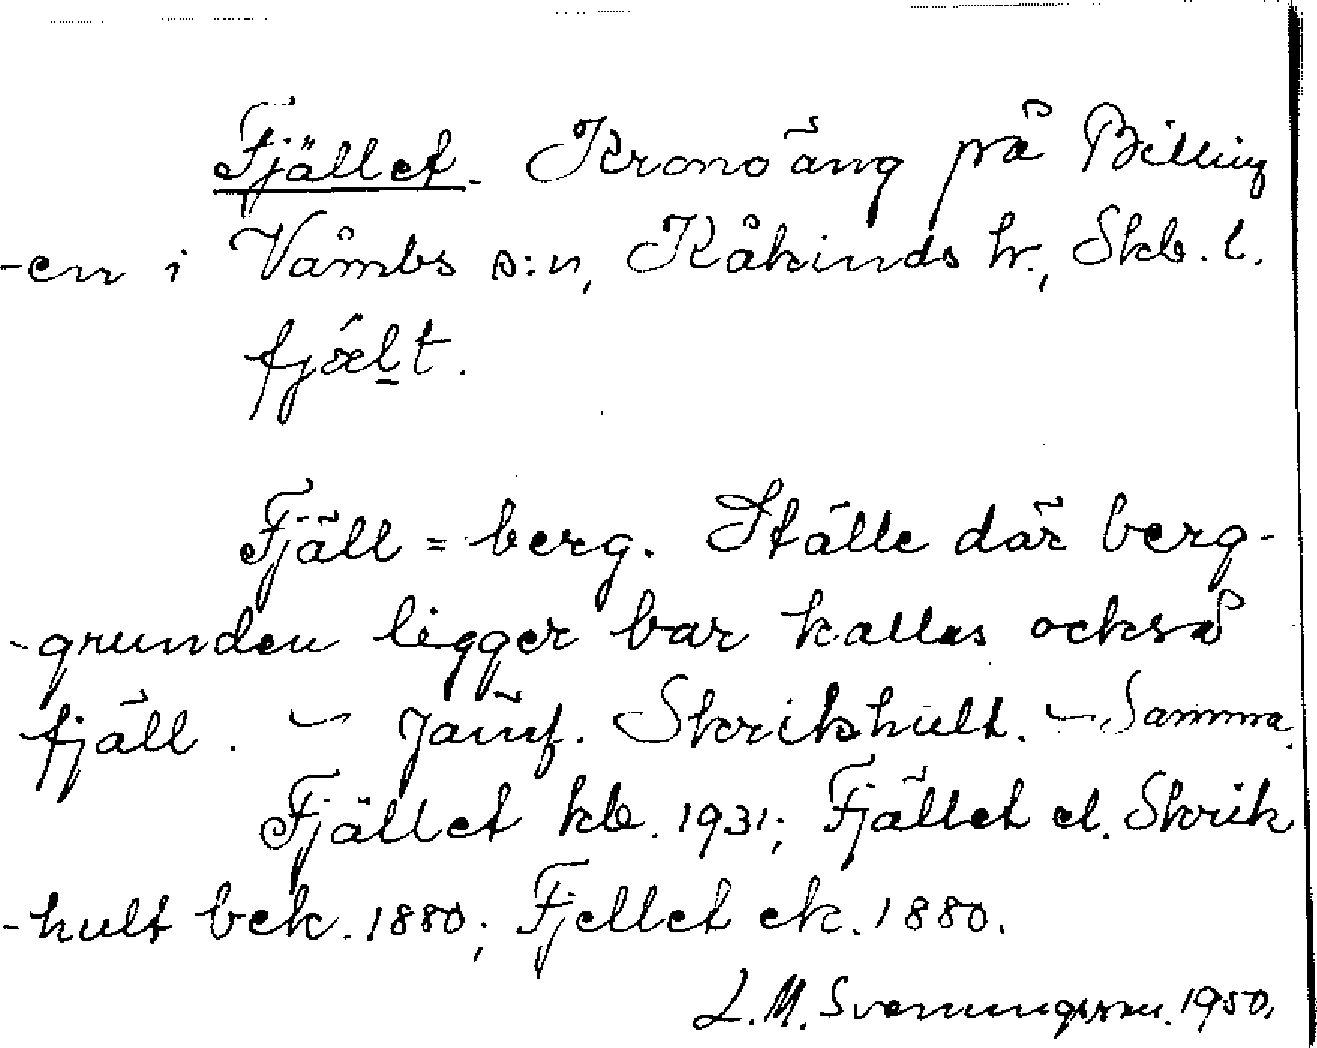 Fjället. Kronoäng på Billing
-en i Våmbs s:n, Kåkinds hr., Skb. l.
fjælt.
Fjäll = berg. Ställe där berg-
-grunden ligger bar kallas också
fjäll. – Jämf. Skrikhult. – Samma.
Fjället kb. 1931; Fjället el. Skrik
-hult bek. 1880; Fjellet ek. 1880.
L. M. Svenungsson. 1950.